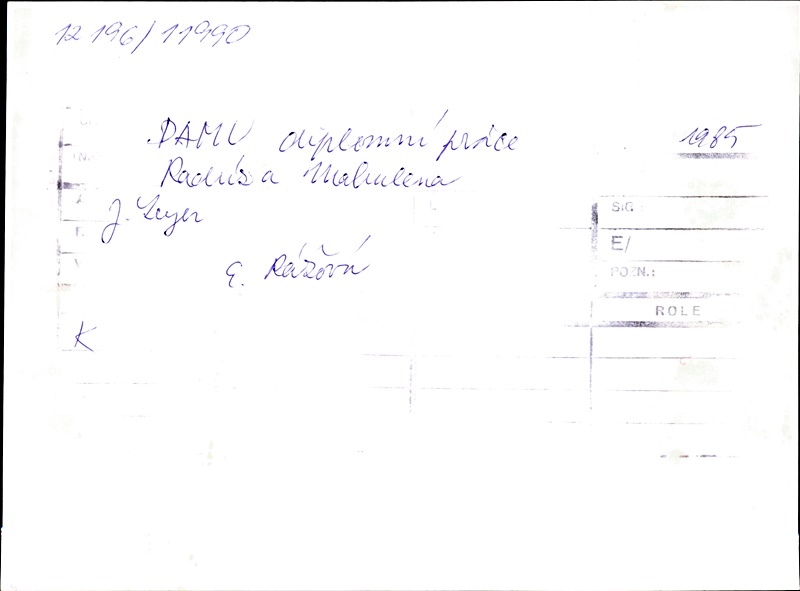 12 196/11990
DAMU diplomní práce 1985
Radúz a Mahulena
J. Zeyer
E. Rážová
K
SIG
E/
POZN.:
ROLE